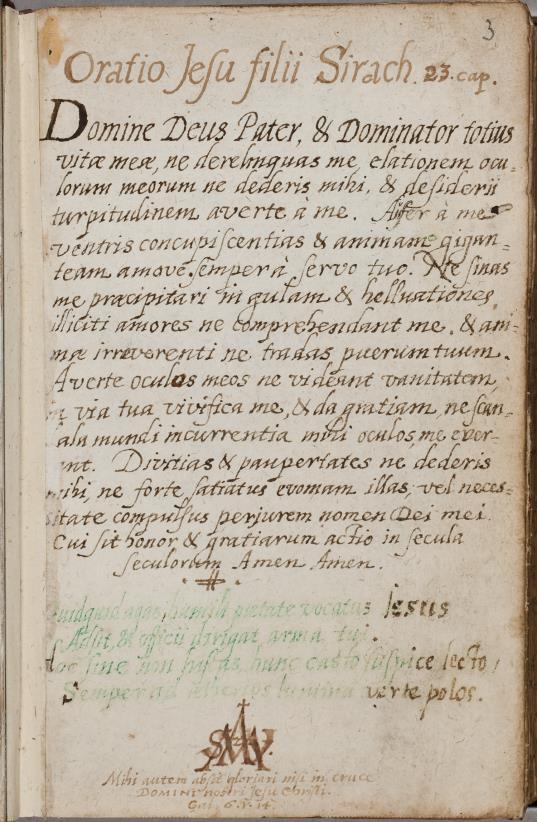 3
Oratio Jesu filii Sirach. 23. cap.
Domine Deus Pater, & Dominator totius
vitæ meæ, ne derelinquas me, elationem ocu-
lorum meorum ne dederis mihi, & desiderii
turpitudinem averte à me. Aufer à me
ventris concupiscentias & animam gigan-
team amove semper à servo tuo. Ne sinas
me præcipitari in gulam & helluationes,
illiciti amores ne comprehendant me, & ani-
mæ irreverenti ne tradas puerum tuum.
Averte oculos meos ne videant vanitatem,
via tua vivifica me, & da gratiam, ne scan-
ala mundi incurrentia mihi oculos, me ever-
nt. Divitias & paupertates ne dederis
mihi, ne forte satiatus evomam illas, vel neces-
sitate compulsus perjurem nomen Dei mei.
Cui sit honor & gratiarum actio in secula
seculorum Amen Amen.
uidquid agas, humili pietate vocatus Jesus
Adsit, & officii dirigat arma tui.
sine hunc casto suspice lecto,
Semper ad lumina verte polos.
Mihi autem absit gloriari nisi in cruce
DOMINI nostri Jesu Christi.
Gal. 6. v. 14.